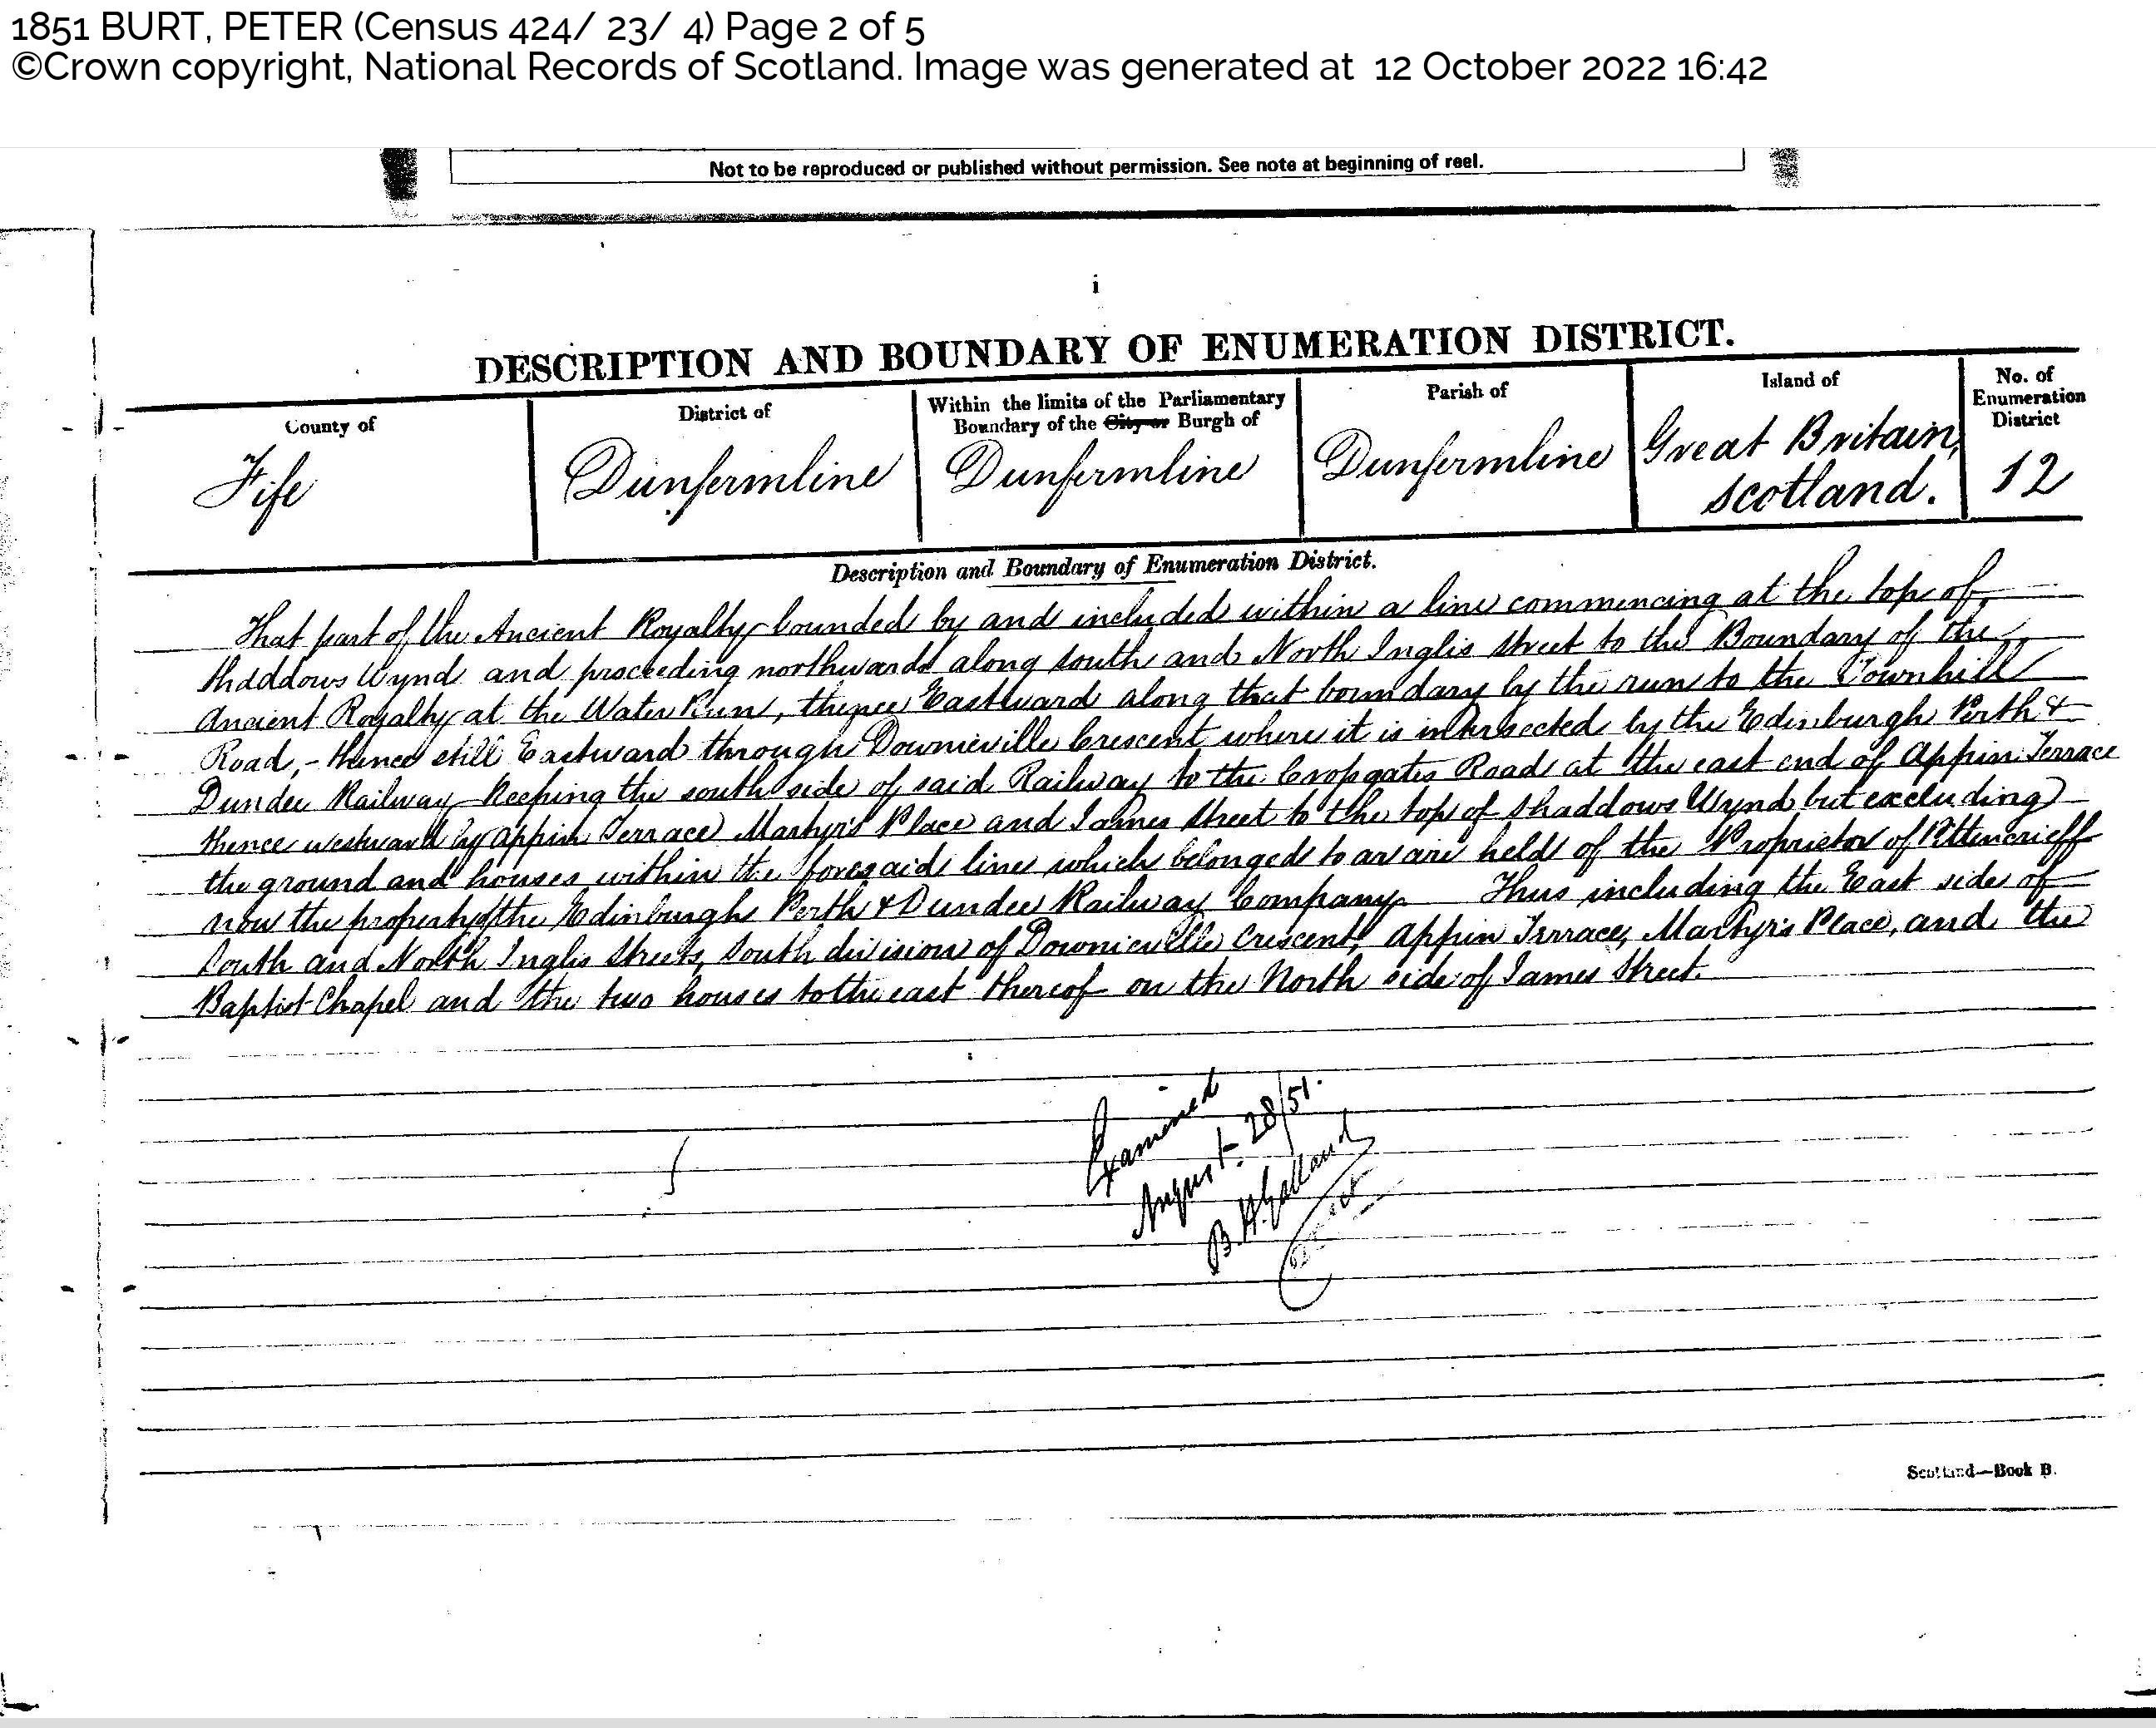 1851 BURT, PETER (Census 424/ 23/ 4) Page 2 of 5
©Crown copyright, National Records of Scotland. Image was generated at 12 October 2022 16:42
Not to be reproduced or published without permission. See note at beginning of reel.
i
DESCRIPTION AND BOUNDARY OF ENUMERATION DISTRICT.
County of
Fife
District of
Dunfermline
Within the limits of the Parliamentary
Boundary of the City or Burgh of
Dunfermline
Parish of
Dunfermline
Island of
Great Britain,
Scotland.
No. of
Enumeration
District
12
Description and Boundary of Enumeration District.
That part of the Ancient Royalty bounded by and included within a line commencing at the top of
Shaddows Wynd and proceeding northwards along South and North Inglis Street to the Boundary of the
Ancient Royalty at the Water Run, thence Eastward along that boundary by the run to the Townhill
Road, - thence still Eastward through Downieville Crescent where it is intersected by the Edinburgh Perth &
Dundee Railway Keeping the south side of said Railway to the Crossgates Road at the east end of Appin Terrace
thence westward by Appin Terrace Martyr's Place and James Street to the top of Shaddows Wynd but excluding
the ground and houses within the foresaid line which belonged to or are held of the Proprietor of Pittencrieff
now the property of the Edinburgh Perth & Dundee Railway Company. Thus including the East side of
South and North Inglis Streets, South division of Downieville Crescent, Appin Terrace, Martyr's Place, and the
Baptist Chapel and the two houses to the east thereof on the North side of James Street.
Examined
August 28/51.
B. H. Galland
Scotland—Book B.